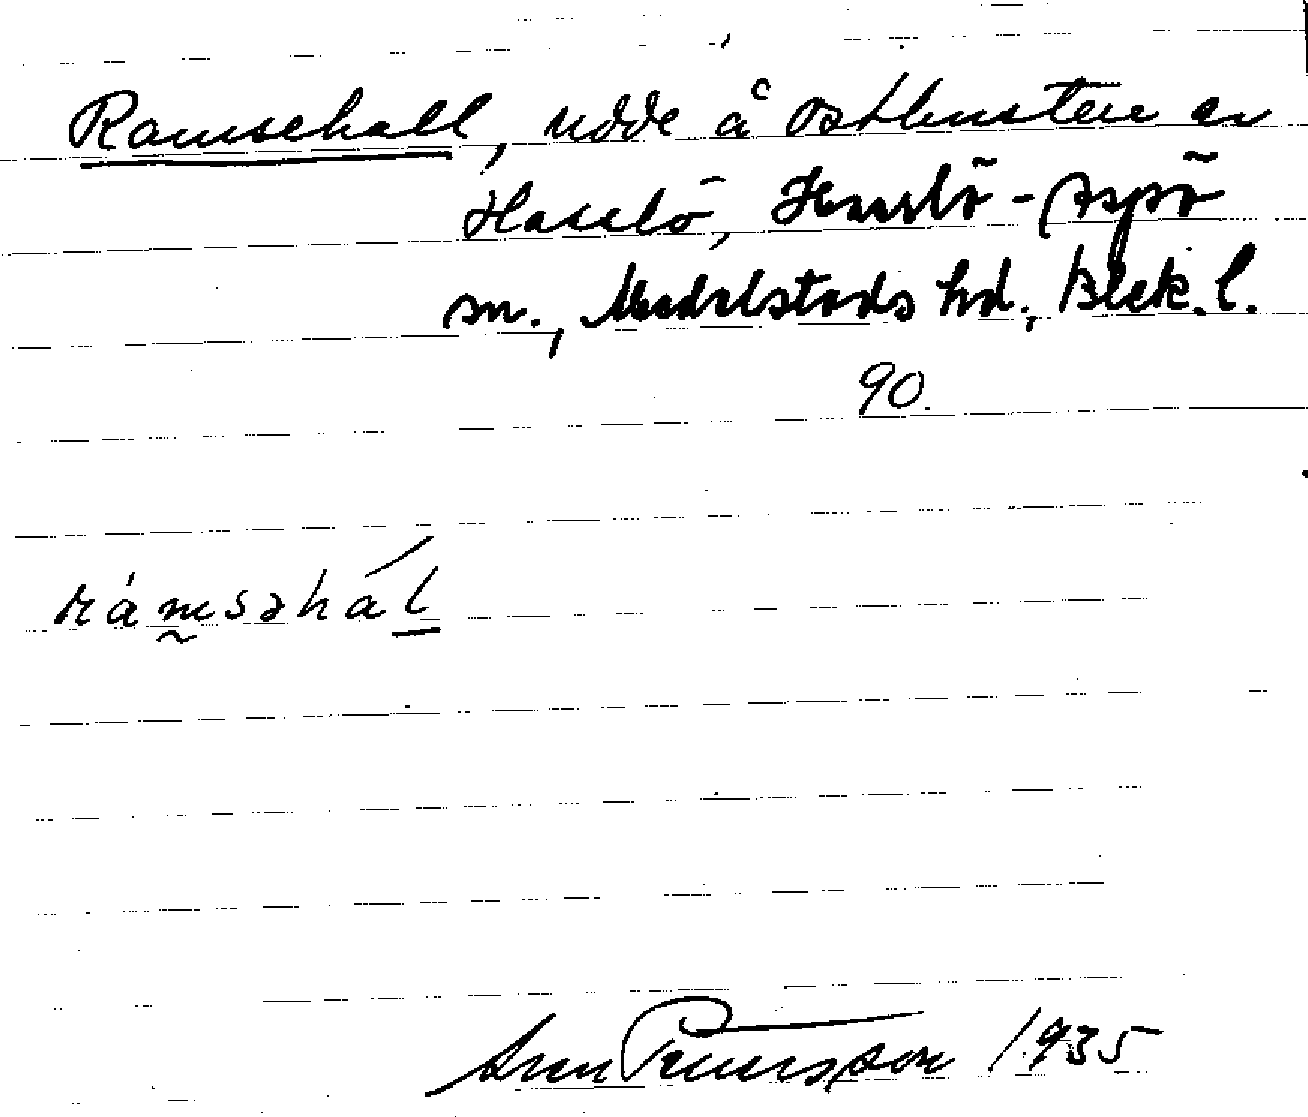 Ramsehall, udde å ostkusten av
Hasslö, Hasslö-Aspö
sn., Medelstads hd., Blek. l.
90.
ràmsəhál
Pettersson 1935